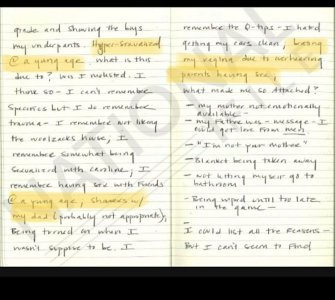 grade and showing the boys
my underpants. Hyper-sexualized
@ a young age. What is this
due to? Was I molested. I
think so - I can't remember
specifics but I do remember
trauma - I remember not liking
the house; I
remember somewhat being
sexualized with ; I
remember having sex with friends
@ a young age; showers w/
my dad (probably not appropriate);
Being turned on when I
wasn't suppose to be. I
remember the Q-tips - I hated
getting my ears clean;
my vagina due to overhearing
parents having sex;
what made me so attached?
- my mother not emotionally
available -
- my father was - message - I
could get love from men
- "I'm not your mother"
- Blanket being taken away
- Not letting myself go to
bathroom
- Being wiped until too late
in the game -
-
I could list all the reasons -
But I can't seem to find